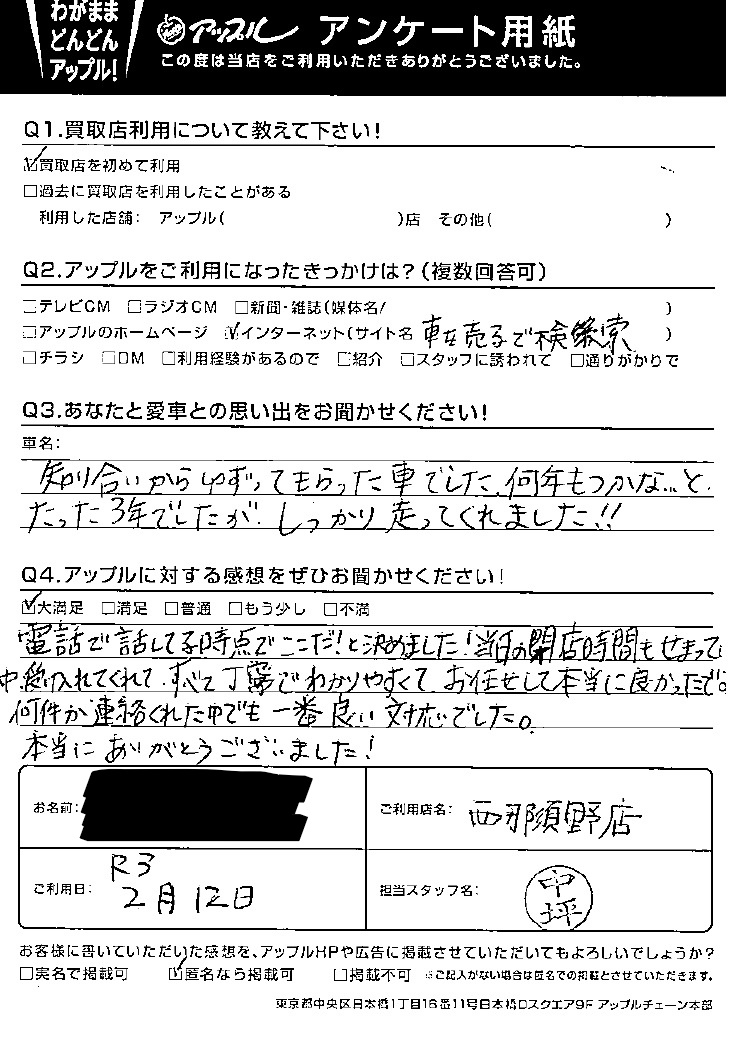 わがまま
どんどん
アップル!
アップル アンケート用紙
この度は当店をご利用いただきありがとうございました。
Q1.買取店利用について教えて下さい!
☑買取店を初めて利用
□過去に買取店を利用したことがある
利用した店舗: アップル( )店 その他( )
Q2.アップルをご利用になったきっかけは?(複数回答可)
□テレビCM □ラジオCM □新聞・雑誌(媒体名/ )
□アップルのホームページ ☑インターネット(サイト名 車を売るで検索 )
□チラシ □DM □利用経験があるので □紹介 □スタッフに誘われて □通りがかりで
Q3.あなたと愛車との思い出をお聞かせください!
車名:
知り合いからゆずってもらった車でした。何年もつかな…と、
たった3年でしたが、しっかり走ってくれました!!
Q4.アップルに対する感想をぜひお聞かせください!
☑大満足 □満足 □普通 □もう少し □不満
電話で話してる時点でここだ!と決めました!当日の閉店時間もせまって
中、受け入れてくれて、すべて丁寧でわかりやすくて、お任せして本当に良かったで。
何件か連絡くれた中でも一番良い対応でした。
本当にありがとうございました!
お名前:
ご利用店名: 西那須野店
ご利用日: R3
2月12日
担当スタッフ名: 中坪
お客様に書いていただいた感想を、アップルHPや広告に掲載させていただいてもよろしいでしょうか?
□実名で掲載可 ☑匿名なら掲載可 □掲載不可 ※ご記入がない場合は匿名での掲載とさせていただきます。
東京都中央区日本橋1丁目16番11号日本橋Dスクエア9F アップルチェーン本部